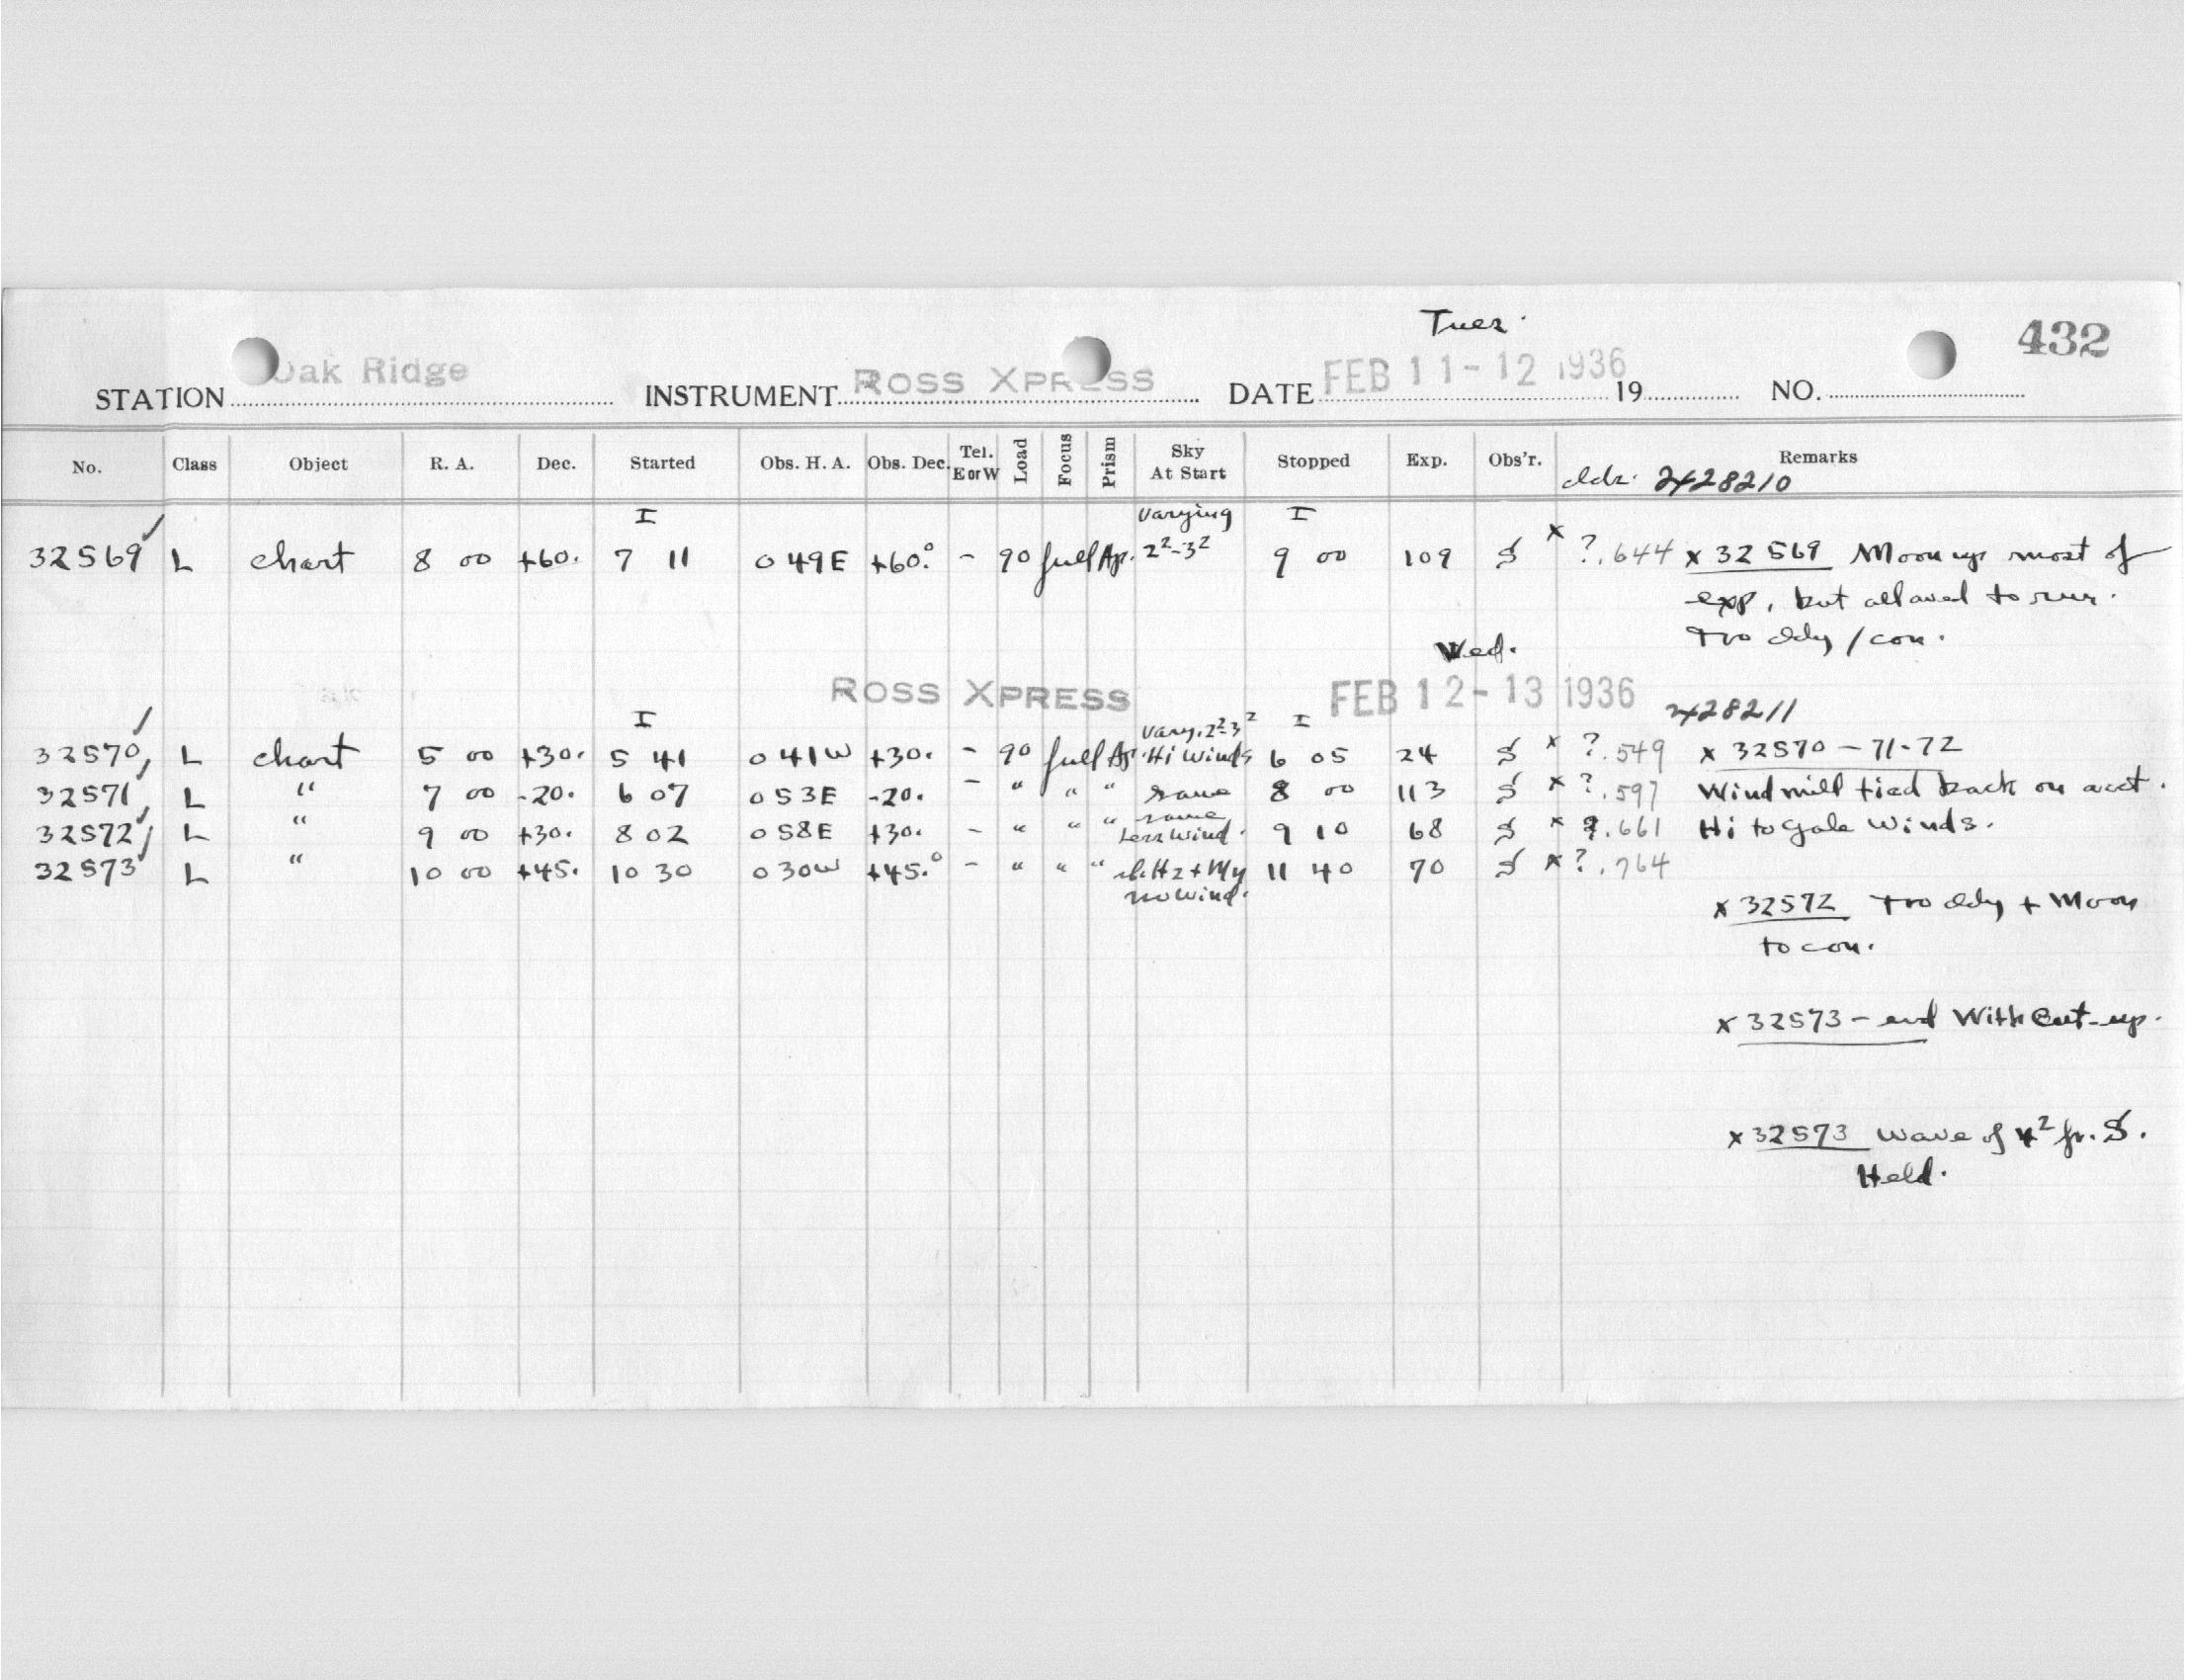 Tues.
432
STATION Oak Ridge INSTRUMENT ROSS XPRESS DATE FEB 11-12 1936 19 NO.
No. Class Object R. A. Dec. Started Obs. H. A. Obs. Dec. Tel. E or W Load Focus Prism Sky At Start Stopped Exp. Obs'r. Remarks
2428210
I varying I
32569 ✓ L chart 8 00 +60. 7 11 0 49E +60.° - 90 full Ap. 2²-3² 9 00 109 S x ?.644 x 32569 Moon up most of
exp, but allowed to run.
Too cldy / con.
Wed.
ROSS XPRESS FEB 12-13 1936
2428211
I Vary. 2²-3² I
32570 ✓ L chart 5 00 +30. 5 41 0 41W +30. - 90 full Ap. Hi Winds 6 05 24 S x ?.549 x 32570 - 71-72
32571 ✓ L " 7 00 -20. 6 07 0 53E -20. - " " " same 8 00 113 S x ?.597 Windmill tied back on acct.
32572 ✓ L " 9 00 +30. 8 02 0 58E +30. - " " " same Less wind. 9 10 68 S x ?.661 Hi to gale winds.
32573 ✓ L " 10 00 +45. 10 30 0 30W +45.° - " " " Hz + My 11 40 70 S x ?.764
no wind.
x 32572 Too cldy + Moon
to con.
x 32573 - end With Cut-up.
x 32573 Wave of 4² fr. S.
Held.